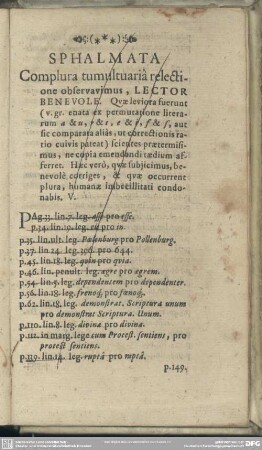 (***)
SPHALMATA
Complura tumultuariâ relecti-
one observavimus, LECTOR
BENEVOLE. Quæ leviora fuerunt
(v. gr. enata ex permutatione litera-
rum a & u, r & t, e & c, f & ſ, aut
ſic comparata aliàs, ut correctionis ra-
rio cuivis pateat) ſcientes prætermiſi-
mus, ne copia emendandi tædium af-
ferret. Hæc verò, quæ ſubjicimus, be-
nevolè corriges, & quæ occurrent
plura, humanæ imbecillitati condo-
nabis. V.
PAg. 33. lin. 7. leg. pro eſſe.
p.34. lin. 10. leg. ex pro in.
p.35. lin. ult. leg. pro Pollenburg.
p.37. lin. 24. leg. 306. pro 644.
p.45. lin. 18. leg. quin pro quia.
p.46. lin. penult. leg. ægre pro agrem.
p.54. lin. 5. leg. dependentem pro dependenter.
p.56. lin. 18. leg. pro
p.62. lin. 18. leg. demonſtrat. Scriptura unum
pro demonſtrat Scriptura. Unum.
p.110. lin. 8. leg. divina pro divina.
p.111. in marg. lege cum Proteſt. ſentiens, pro
proteſt ſentiens.
p.119. lin. 14. leg. ruptâ pro
p.149.